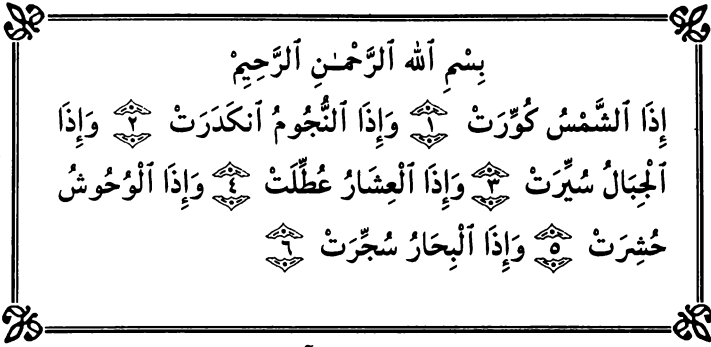 بِسْمِ ٱللهِ ٱلرَّحْمَـٰنِ ٱلرَّحِيمْ
إِذَا ٱلشَّمْسُ كُوِّرَتْ ١ وَإِذَا ٱلنُّجُومُ ٱنكَدَرَتْ ٢ وَإِذَا
ٱلْجِبَالُ سُيِّرَتْ ٣ وَإِذَا ٱلْعِشَارُ عُطِّلَتْ ٤ وَإِذَا ٱلْوُحُوشُ
حُشِرَتْ ٥ وَإِذَا ٱلْبِحَارُ سُجِّرَتْ ٦